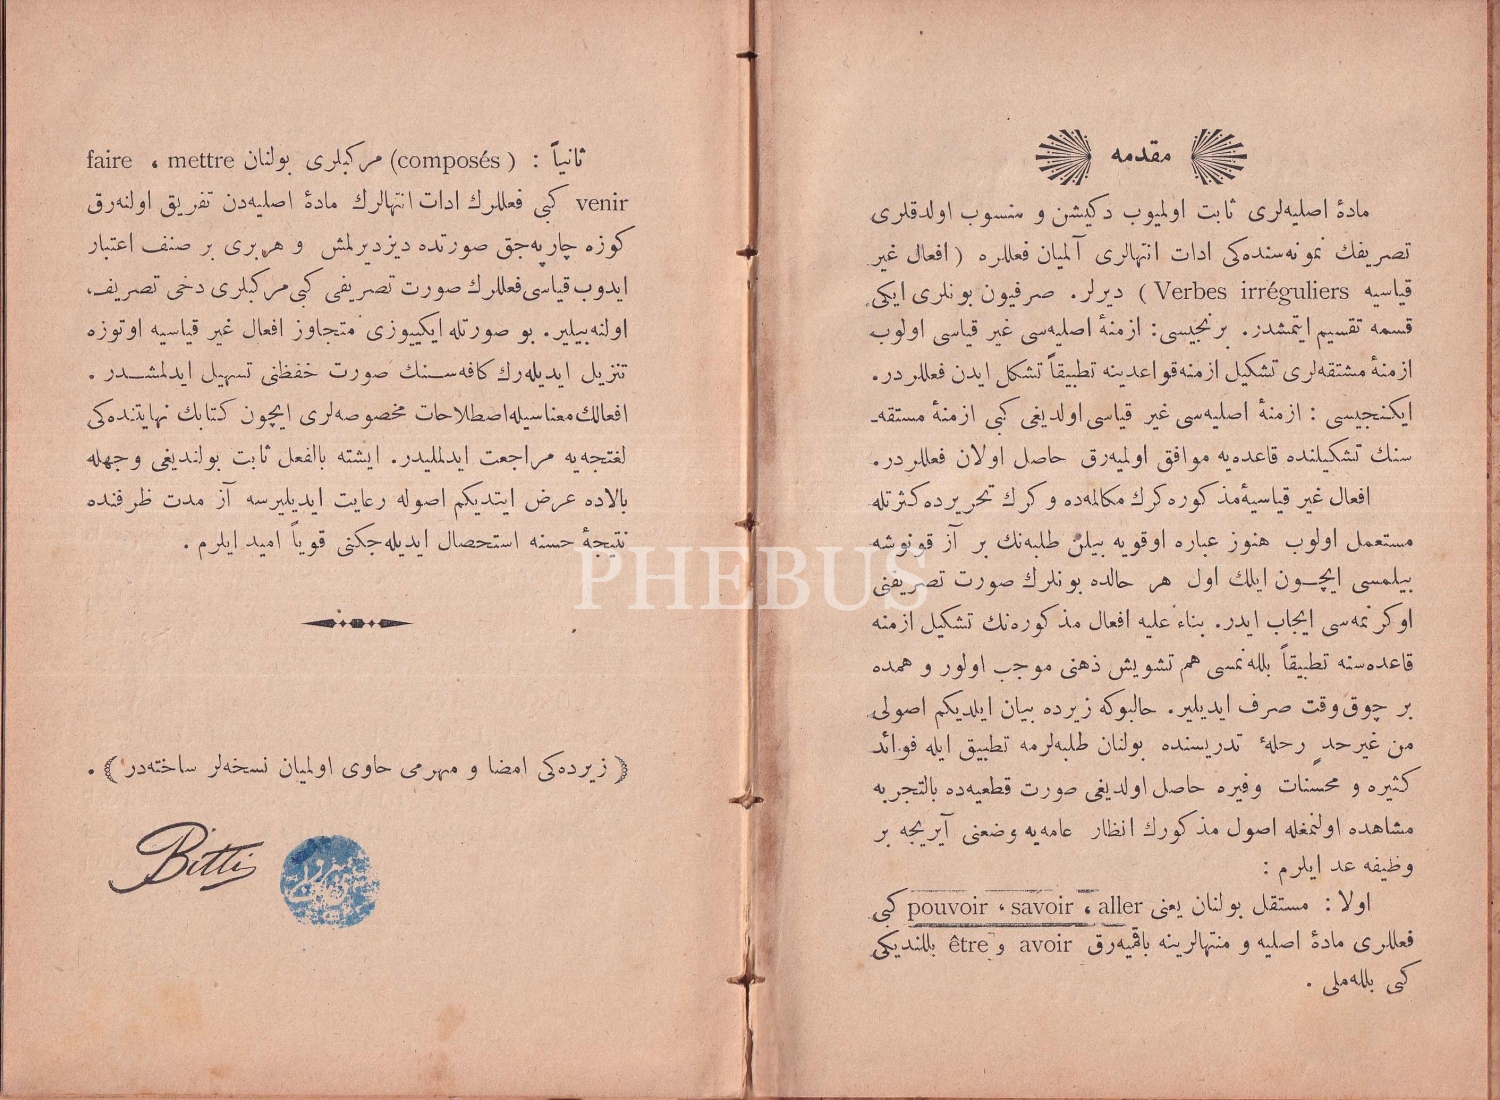 مقدمه
مادهٔ اصلیه‌لری ثابت اولمیوب دکیشن و منسوب اولدقلری
تصریفك نمونه‌سنده‌کی ادات انتهالری آلمیان فعللره (افعال غیر
قیاسیه Verbes irréguliers) دیرلر. صرفیون بونلری ایکی
قسمه تقسیم ایتمشدر. برنجیسی: ازمنهٔ اصلیه‌سی غیر قیاسی اولوب
ازمنهٔ مشتقه‌لری تشکیل ازمنه قواعدینه تطبیقاً تشکل ایدن فعللردر.
ایکنجیسی : ازمنهٔ اصلیه‌سی غیر قیاسی اولدیغی کبی ازمنهٔ مستقه‌ـ
سنك تشکیلنده قاعده‌یه موافق اولمیه‌رق حاصل اولان فعللردر.
افعال غیر قیاسیهٔ مذکوره کرك مکالمه‌ده و کرك تحریرده کثرتله
مستعمل اولوب هنوز عباره اوقویه بیلن طلبه‌نك بر آز قونوشه
بیلمسی ایچـون ایلك اول هر حالده بونلرك صورت تصریفنی
اوکرنمه‌سی ایجاب ایدر. بناءً علیه افعال مذکوره‌نك تشکیل ازمنه
قاعده‌سنه تطبیقاً بللەنمسی هم تشویش ذهنی موجب اولور و همده
بر چوق وقت صرف ایدیلیر. حالبوکه زیرده بیان ایلدیکم اصولی
من غیر حدٍ رحلهٔ تدریسنده بولنان طلبه‌لرمه تطبیق ایله فوائد
کثیره و محسنات وفیره حاصل اولدیغی صورت قطعیه‌ده بالتجربه
مشاهده اولنمغله اصول مذکورك انظار عامه‌یه وضعنی آیریجه بر
وظیفه عد ایلرم :
اولا : مستقل بولنان یعنی pouvoir ، savoir ، aller کبی
فعللری مادهٔ اصلیه و منتهالرینه باقمیه‌رق avoir و être بللندیکی
کبی بلله‌ملی .
ثانیاً : (composés) مرکبلری بولنان faire ، mettre
venir کبی فعللرك ادات انتهالرك مادهٔ اصلیه‌دن تفریق اولنه‌رق
کوزه چارپه‌جق صورتده دیزدیرلمش و هربری بر صنف اعتبار
ایدوب قیاسی فعللرك صورت تصریفی کبی مرکبلری دخی تصریف،
اولنه‌بیلیر. بو صورتله ایکییوزی متجاوز افعال غیر قیاسیه اوتوزه
تنزیل ایدیله‌رك کافه‌سـنك صورت خفظنی تسهیل ایدلمشـدر .
افعالك معناسیله اصطلاحات مخصوصه‌لری ایچون کتابك نهایتنده‌کی
لغتجه‌یه مراجعت ایدلملیدر. ایشته بالفعل ثابت بولندیغی وجهله
بالاده عرض ایتدیکم اصوله رعایت ایدیلیرسه آز مدت ظرفنده
نتیجهٔ حسنه استحصال ایدیله‌جکنی قویاً امید ایلرم .
(زیرده‌کی امضا و مهرمی حاوی اولمیان نسخه‌لر ساخته‌در) .
Bitti
PHEBUS